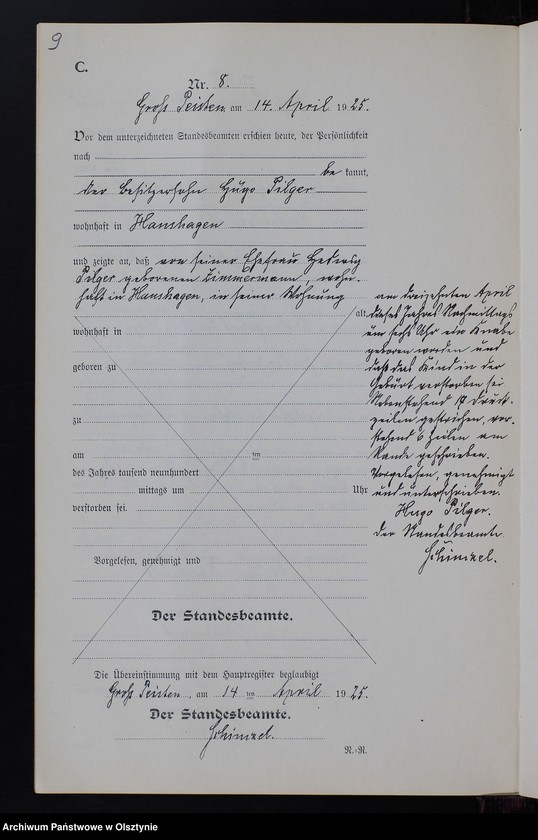 9
C.
Nr. 8.
Groß Peisten, am 14. April 1925.
Vor dem unterzeichneten Standesbeamten erschien heute, der Persönlichkeit
nach
be kannt,
der Besitzersohn Hugo Pilger
wohnhaft in Hanshagen
und zeigte an, daß von seiner Ehefrau Hedwig
Pilger geborenen Zimmermann, wohn-
haft in Hanshagen, in seiner Wohnung
alt,
wohnhaft in
geboren zu
zu
am ten
des Jahres tausend neunhundert
mittags um Uhr
verstorben sei.
Vorgelesen, genehmigt und
Der Standesbeamte.
am dreizehnten April
dieses Jahres Nachmittags
um sechs Uhr ein Knabe
geboren worden und
daß das Kind in der
Geburt verstorben sei
Nebenstehend 17 Druck-
zeilen gestrichen, vor-
stehend 6 Zeilen am
Rande geschrieben.
Vorgelesen, genehmigt
und unterschrieben.
Hugo Pilger.
Der Standesbeamte.
Schinzel.
Die Übereinstimmung mit dem Hauptregister beglaubigt
Groß Peisten, am 14 ten April 1925.
Der Standesbeamte.
Schinzel.
N.-R.
Archiwum Państwowe w Olsztynie